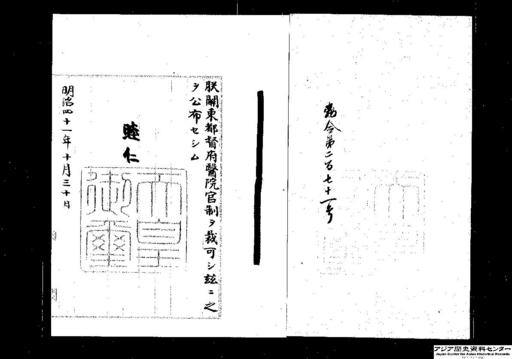 勅令第二百七十一号
朕關東都督府醫院官制ヲ裁可シ茲ニ之
ヲ公布セシム
睦仁
天皇
御璽
明治四十一年十月三十日
アジア歴史資料センター
Japan Center for Asian Historical Records